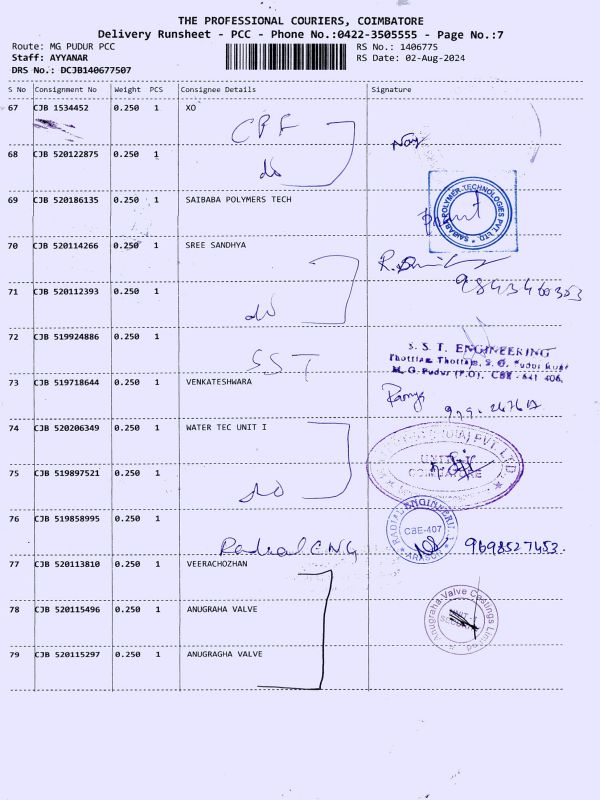 THE PROFESSIONAL COURIERS, COIMBATORE
Delivery Runsheet - PCC - Phone No.:0422-3505555 - Page No.:7
Route: MG PUDUR PCC
RS No.: 1406775
Staff: AYYANAR
RS Date: 02-Aug-2024
DRS No.: DCJB140677507
S No Consignment No Weight PCS Consignee Details Signature
67 CJB 1534452 0.250 1 XO
CPF
68 CJB 520122875 0.250 1
do
69 CJB 520186135 0.250 1 SAIBABA POLYMERS TECH
SAIBABA POLYMER TECHNOLOGIES PVT LTD
70 CJB 520114266 0.250 1 SREE SANDHYA
71 CJB 520112393 0.250 1
do
72 CJB 519924886 0.250 1
SST
S. S. T. ENGINEERING
M. G. Pudur (P.O), CBE - 641 406.
73 CJB 519718644 0.250 1 VENKATESHWARA
74 CJB 520206349 0.250 1 WATER TEC UNIT I
PVT. LTD.
75 CJB 519897521 0.250 1
do
76 CJB 519858995 0.250 1
Radial ENG
CBE-407
9698527453.
77 CJB 520113810 0.250 1 VEERACHOZHAN
78 CJB 520115496 0.250 1 ANUGRAHA VALVE
Anugraha Valve Castings Limited
79 CJB 520115297 0.250 1 ANUGRAGHA VALVE